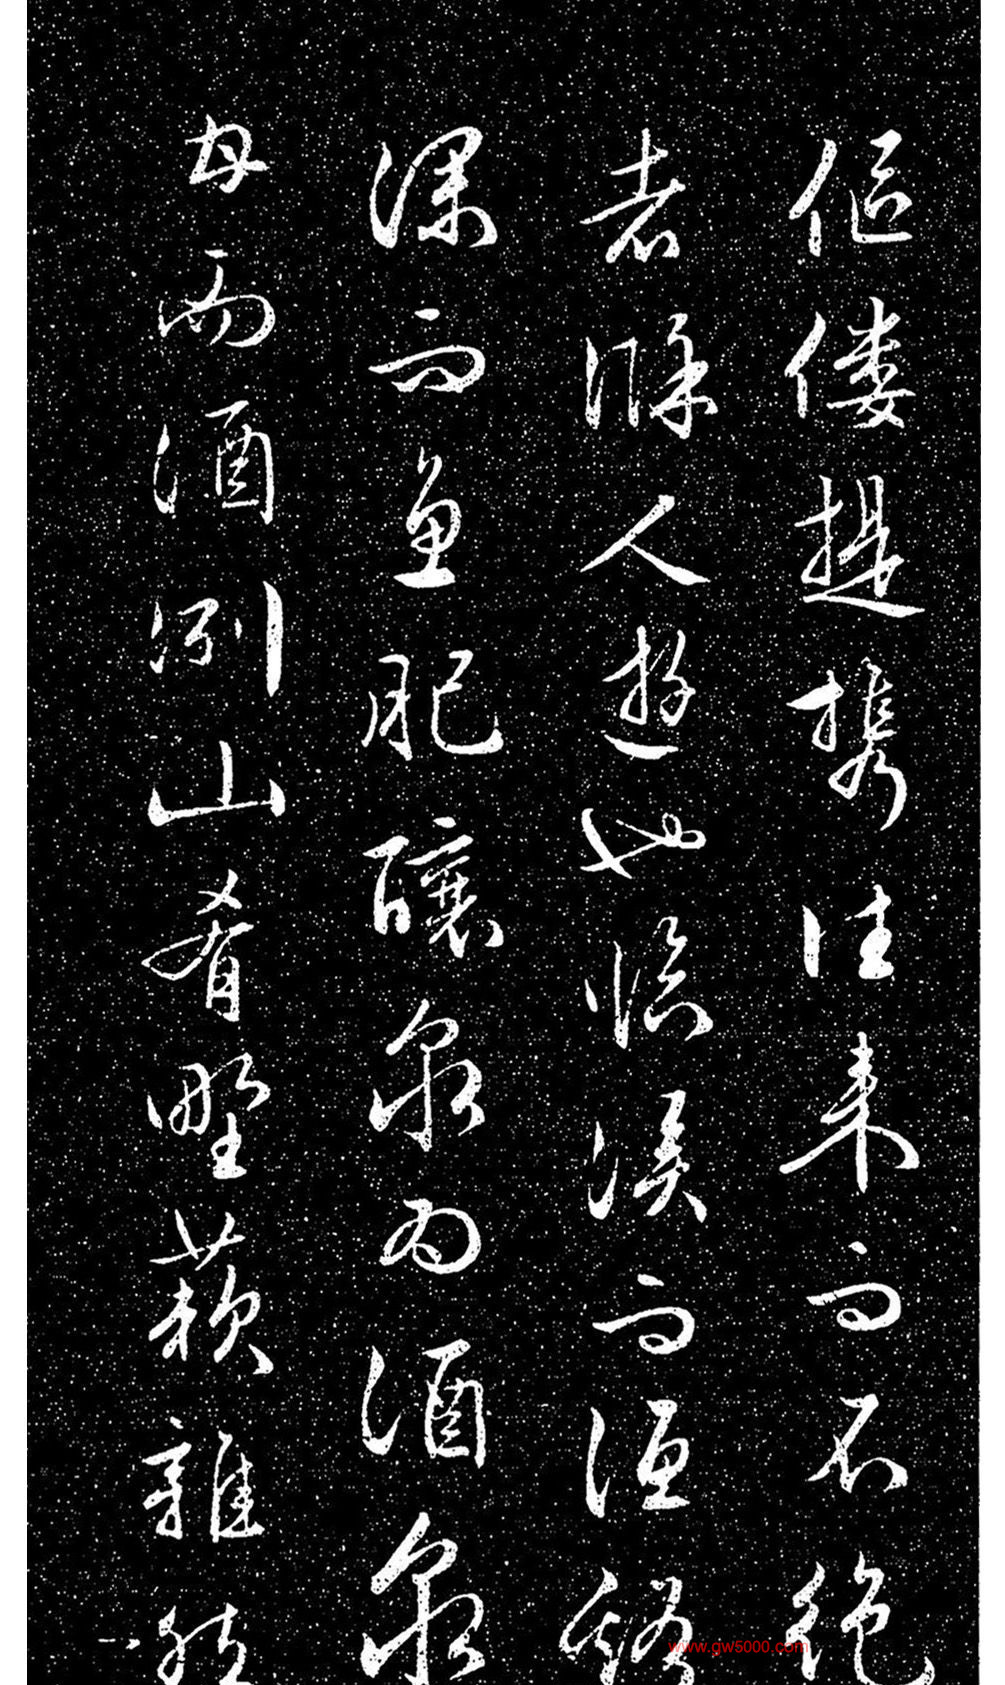 傴僂提携往来而不絕
者滁人遊也臨溪而漁谿
深而魚肥釀泉為酒泉
香而酒冽山肴野蔌雜然
www.gw5000.com